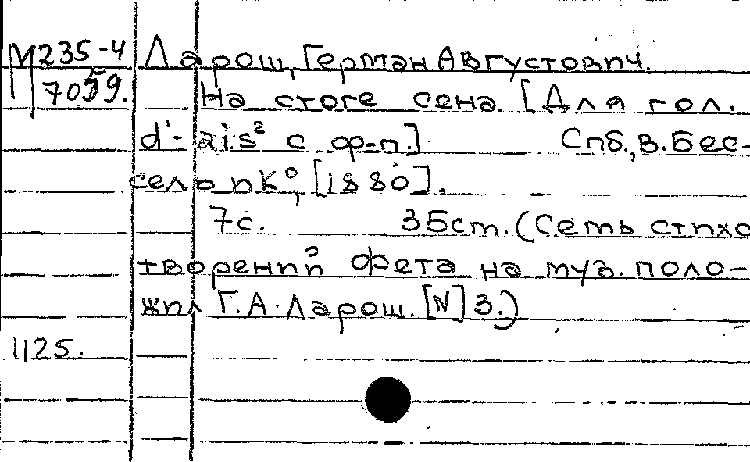 М 235-4 Ларош, Герман Августович.
7059. На стоге сена. [Для гол.
d'-ais² с ф-п.] Спб., В. Бес-
сель и К°, [1880].
7с. 35см. (Семь стихо
творений Фета на муз. поло-
жил Г. А. Ларош. [№] 3.)
1125.